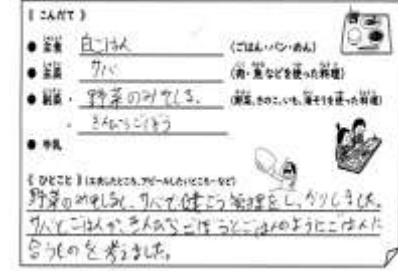 《こんだて》
●主食 白ごはん (ごはん・パン・めん)
●主菜 サバ (肉・魚などを使った料理)
●副菜・野菜のみそしる (野菜、きのこ、いも、海そうを使った料理)
・きんぴらごぼう
●牛乳
《ひとこと》(工夫したところ、アピールしたいところ…など)
野菜のみそしると、サバで健こう管理をしっかりしました。
サバとごはんや、きんぴらごぼうとごはんのようにごはんに
合うものを考えました。